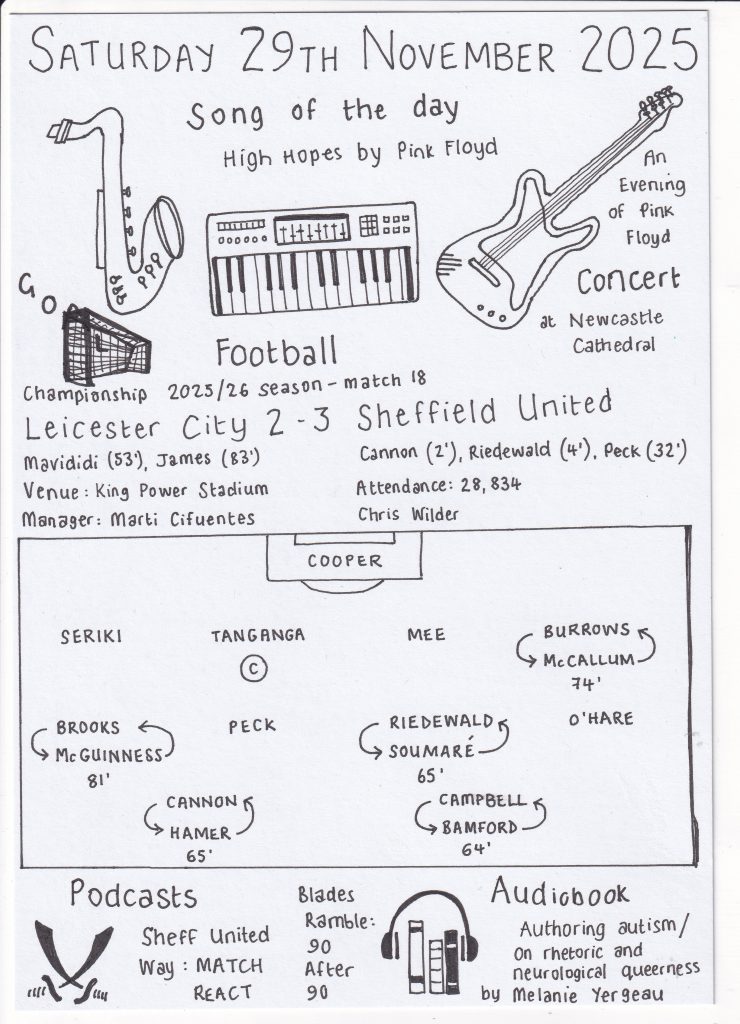 SATURDAY 29TH NOVEMBER 2025
Song of the day
High Hopes by Pink Floyd
An
Evening
of Pink
Floyd
Concert
at Newcastle
Cathedral
GO
L
Football
Championship 2025/26 season - match 18
Leicester City 2 - 3 Sheffield United
Mavididi (53'), James (83')
Cannon (2'), Riedewald (4'), Peck (32')
Venue: King Power Stadium
Attendance: 28,834
Manager: Marti Cifuentes
Chris Wilder
COOPER
SERIKI
TANGANGA
MEE
BURROWS
McCALLUM
74'
C
BROOKS
McGUINNESS
81'
PECK
RIEDEWALD
SOUMARÉ
65'
O'HARE
CANNON
HAMER
65'
CAMPBELL
BAMFORD
64'
Podcasts
Sheff United
Way: MATCH
REACT
Blades
Ramble:
90
After
90
Audiobook
Authoring autism/
On rhetoric and
neurological queerness
by Melanie Yergeau